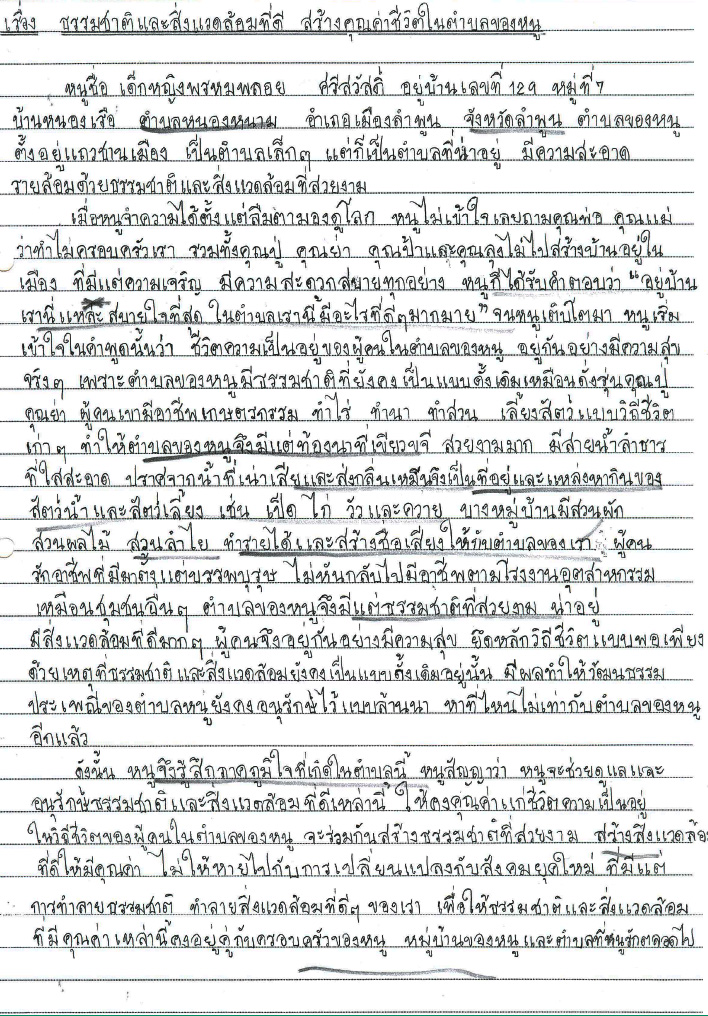 เรื่อง ธรรมชาติและสิ่งแวดล้อมที่ดี สร้างคุณค่าชีวิตในตำบลของหนู
หนูชื่อ เด็กหญิงพรหมพลอย ศรีสวัสดิ์ อยู่บ้านเลขที่ 129 หมู่ที่ 7
บ้านหนองเรือ ตำบลหนองหนาม อำเภอเมืองลำพูน จังหวัดลำพูน ตำบลของหนู
ตั้งอยู่แถวชานเมือง เป็นตำบลเล็กๆ แต่ก็เป็นตำบลที่น่าอยู่ มีความสะอาด
รายล้อมด้วยธรรมชาติและสิ่งแวดล้อมที่สวยงาม
เมื่อหนูจำความได้ตั้งแต่ลืมตามองดูโลก หนูไม่เข้าใจเลยถามคุณพ่อ คุณแม่
ว่าทำไมครอบครัวเรา รวมทั้งคุณปู่ คุณย่า คุณป้าและคุณลุงไม่ไปสร้างบ้านอยู่ใน
เมือง ที่มีแต่ความเจริญ มีความสะดวกสบายทุกอย่าง หนูก็ได้รับคำตอบว่า "อยู่บ้าน
เรานี่แหล่ะ สบายใจที่สุด ในตำบลเรานี้มีอะไรที่ดีๆมากมาย" จนหนูเติบโตมา หนูเริ่ม
เข้าใจในคำพูดนั้นว่า ชีวิตความเป็นอยู่ของผู้คนในตำบลของหนู อยู่กันอย่างมีความสุข
จริงๆ เพราะตำบลของหนูมีธรรมชาติที่ยังคงเป็นแบบดั้งเดิมเหมือนดั่งรุ่นคุณปู่
คุณย่า ผู้คนเขามีอาชีพเกษตรกรรม ทำไร่ ทำนา ทำสวน เลี้ยงสัตว์แบบวิถีชีวิต
เก่าๆ ทำให้ตำบลของหนูจึงมีแต่ท้องนาที่เขียวขจี สวยงามมาก มีสายน้ำลำธาร
ที่ใสสะอาด ปราศจากน้ำที่เน่าเสียและส่งกลิ่นเหม็นจึงเป็นที่อยู่และแหล่งหากินของ
สัตว์น้ำและสัตว์เลี้ยง เช่น เป็ด ไก่ วัวและควาย บางหมู่บ้านมีสวนผัก
สวนผลไม้ สวนลำไย ทำรายได้และสร้างชื่อเสียงให้กับตำบลของเรา ผู้คน
รักอาชีพที่มีมาตั้งแต่บรรพบุรุษ ไม่หันกลับไปมีอาชีพตามโรงงานอุตสาหกรรม
เหมือนชุมชนอื่นๆ ตำบลของหนูจึงมีแต่ธรรมชาติที่สวยงาม น่าอยู่
มีสิ่งแวดล้อมที่ดีมากๆ ผู้คนจึงอยู่กันอย่างมีความสุข ยึดหลักวิถีชีวิตแบบพอเพียง
ด้วยเหตุที่ธรรมชาติและสิ่งแวดล้อมยังคงเป็นแบบดั้งเดิมอยู่นั้น มีผลทำให้วัฒนธรรม
ประเพณีของตำบลหนูยังคงอนุรักษ์ไว้แบบล้านนา หาที่ไหนไม่เท่ากับตำบลของหนู
อีกแล้ว
ดังนั้น หนูจึงรู้สึกภาคภูมิใจที่เกิดในตำบลนี้ หนูสัญญาว่า หนูจะช่วยดูแลและ
อนุรักษ์ธรรมชาติและสิ่งแวดล้อมที่ดีเหล่านี้ ให้คงคุณค่าแก่ชีวิตความเป็นอยู่
ในวิถีชีวิตของผู้คนในตำบลของหนู จะร่วมกันสร้างธรรมชาติที่สวยงาม สร้างสิ่งแวดล้อม
ที่ดีให้มีคุณค่า ไม่ให้หายไปกับการเปลี่ยนแปลงกับสังคมยุคใหม่ ที่มีแต่
การทำลายธรรมชาติ ทำลายสิ่งแวดล้อมที่ดีๆ ของเรา เพื่อให้ธรรมชาติและสิ่งแวดล้อม
ที่มีคุณค่าเหล่านี้คงอยู่คู่กับครอบครัวของหนู หมู่บ้านของหนูและตำบลที่หนูรักตลอดไป